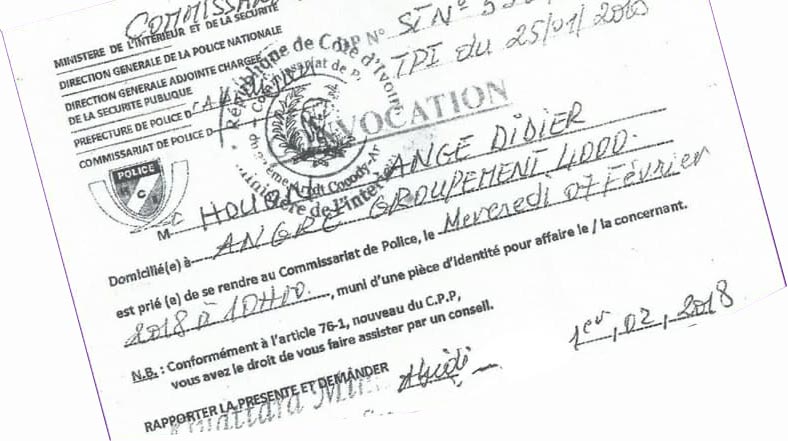 MINISTERE DE L'INTERIEUR ET DE LA SECURITE
DIRECTION GENERALE DE LA POLICE NATIONALE
DIRECTION GENERALE ADJOINTE CHARGEE
DE LA SECURITE PUBLIQUE
PREFECTURE DE POLICE D
COMMISSARIAT DE POLICE D
N°
SI N°
TPI du 25/01/2018
République de Côte d'Ivoire
VOCATION
POLICE
M ANGE DIDIER
Domicilié(e) à ANGRE GROUPEMENT 4000
est prié (e) de se rendre au Commissariat de Police, le Mercredi 07 Février
2018 à 10H00, muni d'une pièce d'identité pour affaire le / la concernant.
N.B. : Conformément à l'article 76-1, nouveau du C.P.P,
vous avez le droit de vous faire assister par un conseil.
1er, 02, 2018
RAPPORTER LA PRESENTE ET DEMANDER